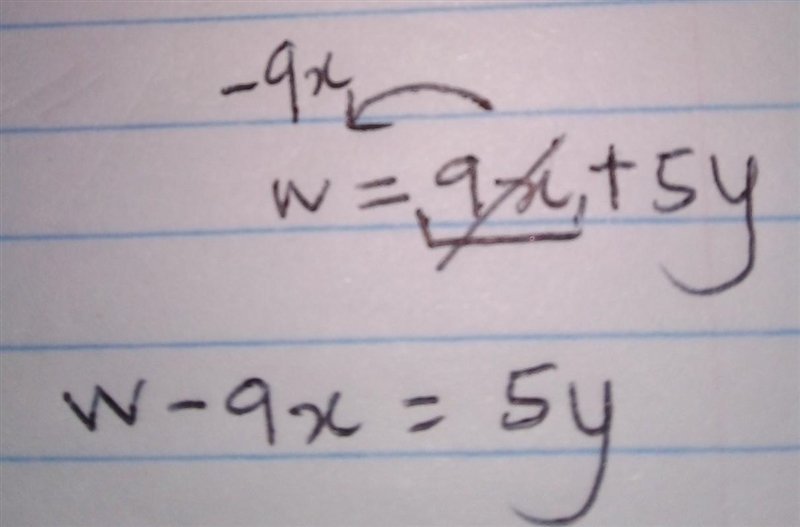 -9x
w = 9x + 5y
w - 9x = 5y